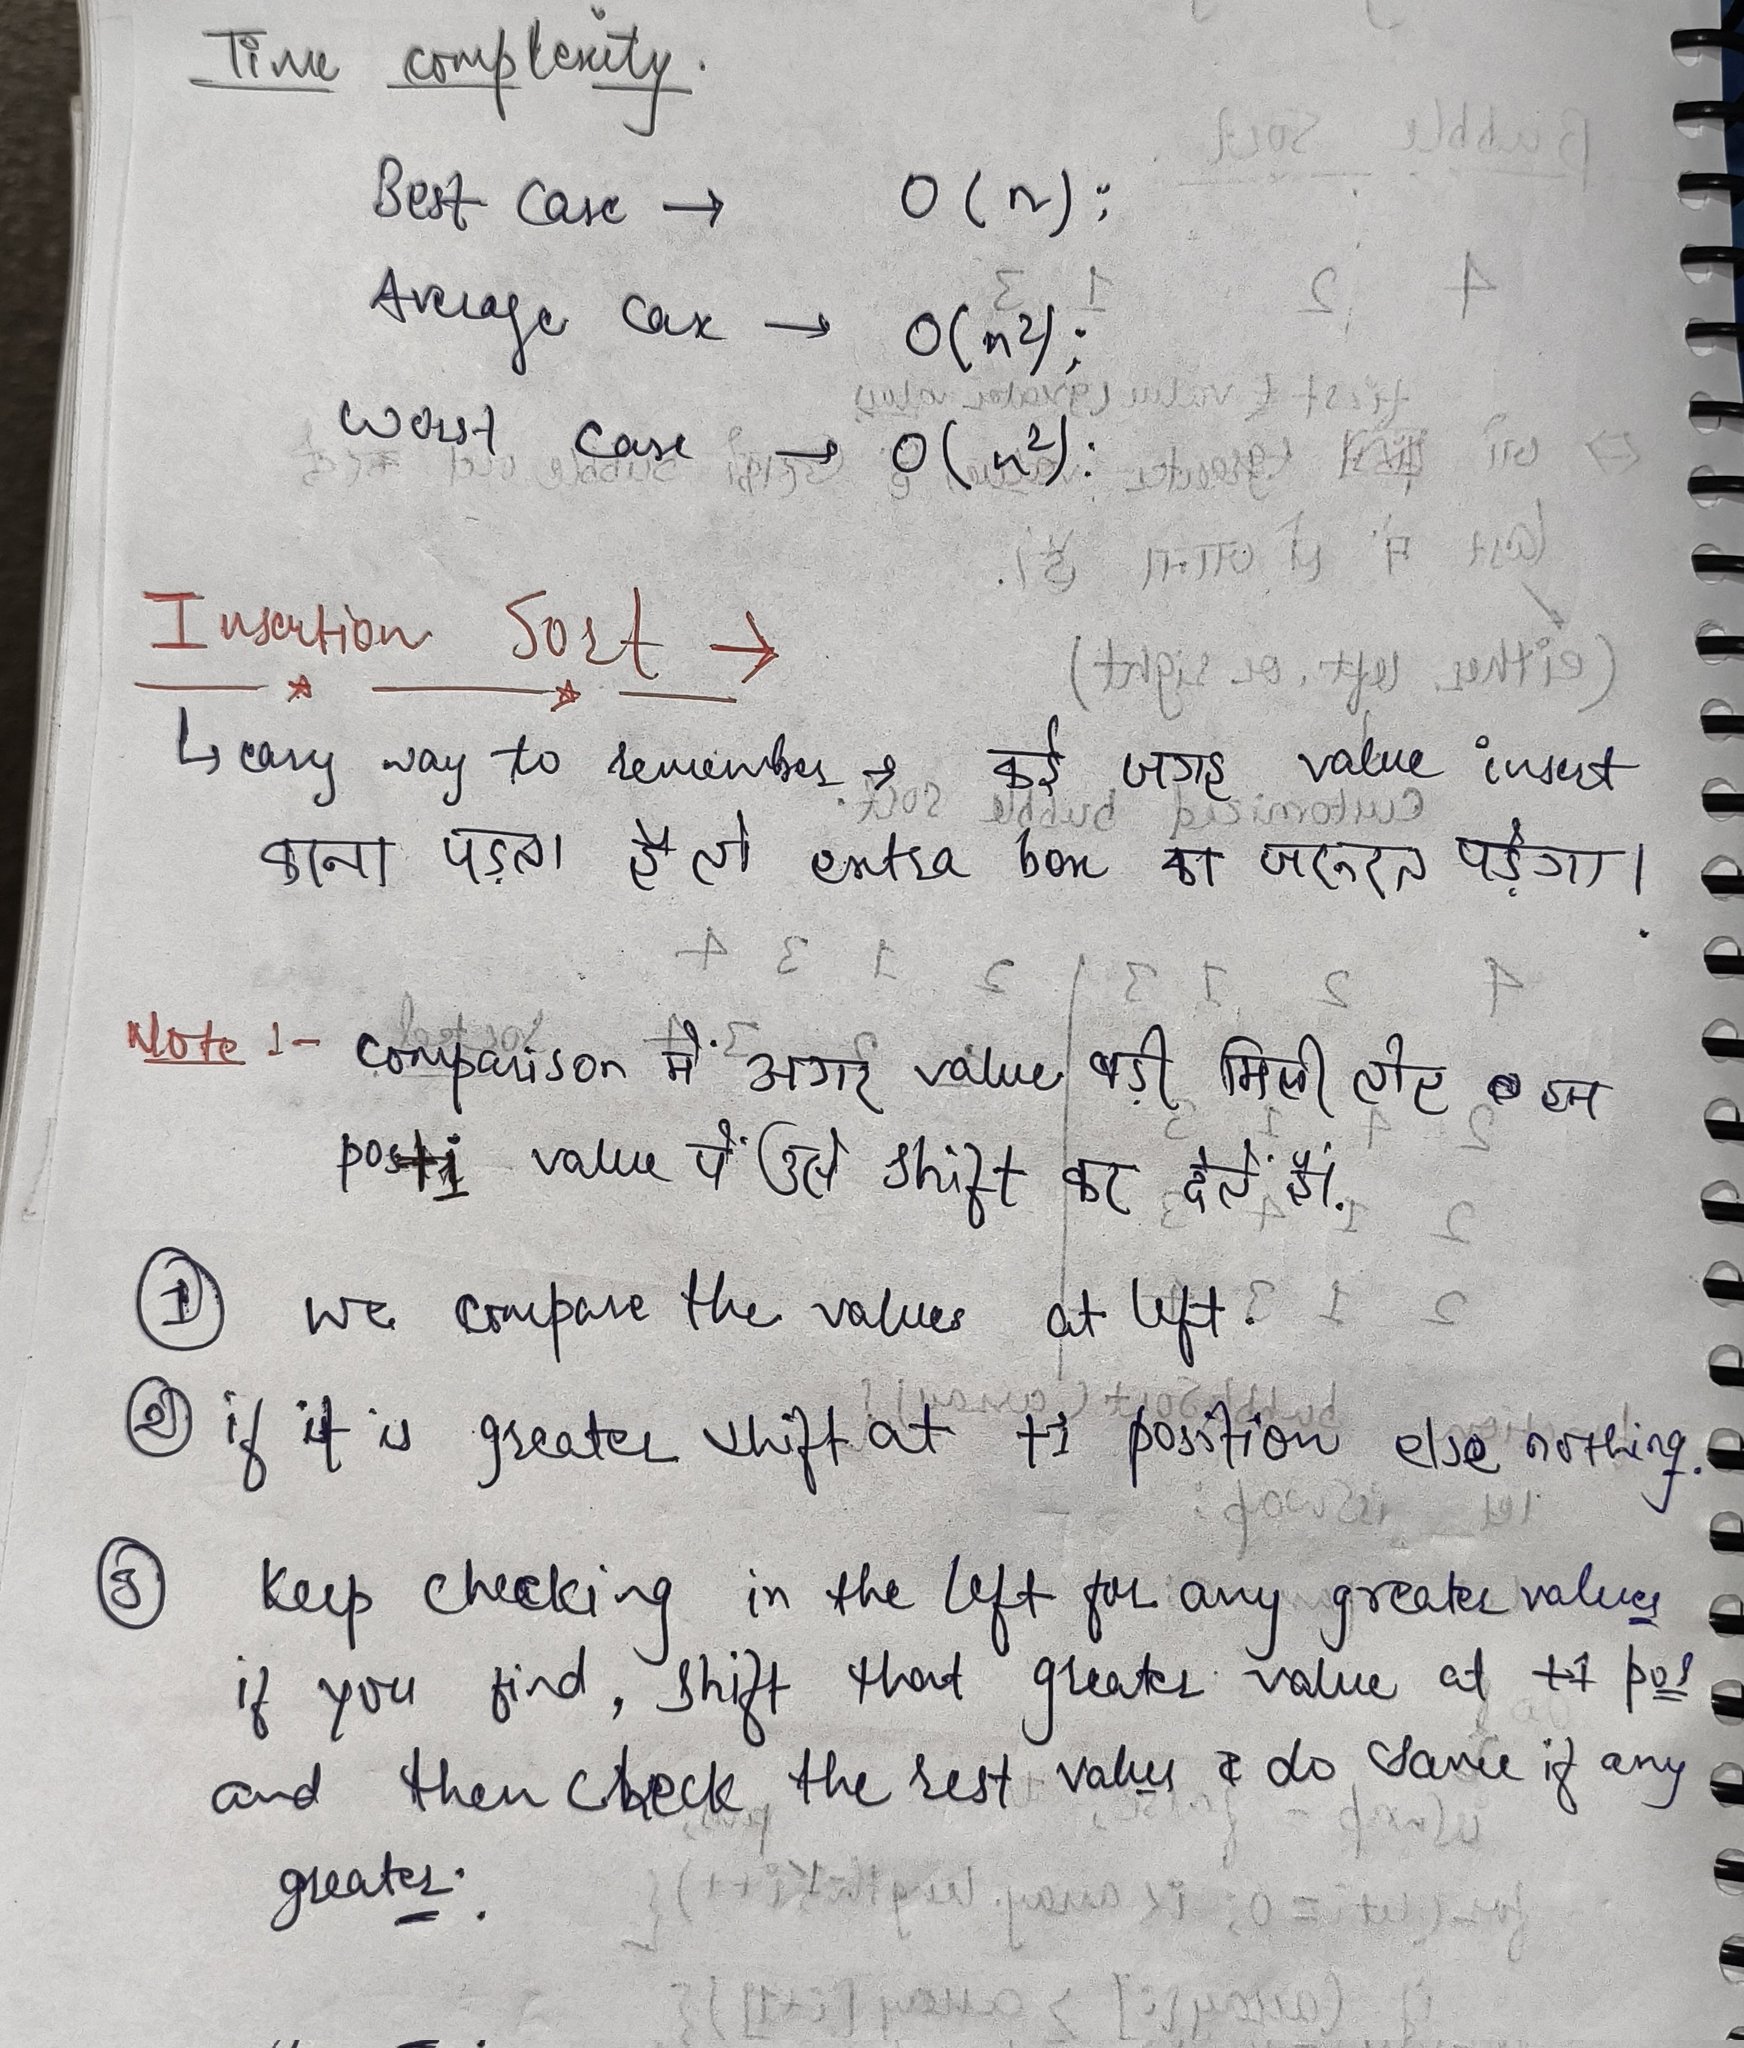 Time complexity.
Best Case → O(n);
Average Case → O(n²);
Worst Case → O(n²):
Insertion Sort →
↳ easy way to remember → कई जगह value insert
काना पड़ता है तो extra box का जरूरत पड़ेगा।
Note :- Comparison में अगर value बड़ी मिली तो हम
pos+1 value पे उसे shift कर देतें हैं.
① we compare the values at left.
② if it is greater shift at +1 position else nothing.
③ Keep checking in the left for any greater values
if you find, shift that greater value at +1 pos
and then check the rest values & do same if any
greater.